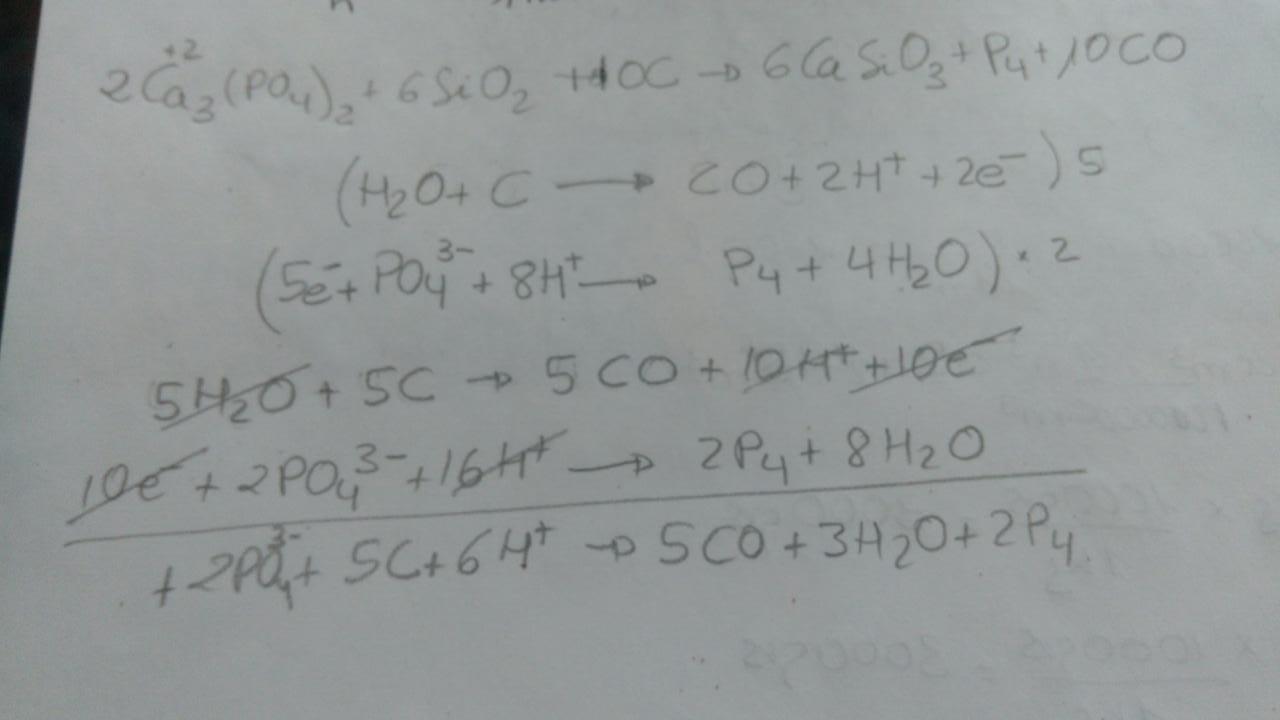 2Ca₃⁺²(PO₄)₂ + 6SiO₂ + 10C → 6CaSiO₃ + P₄ + 10CO
(H₂O + C → CO + 2H⁺ + 2e⁻) 5
(5e⁻ + PO₄³⁻ + 8H⁺ → P₄ + 4H₂O) · 2
5H₂O + 5C → 5CO + 10H⁺ + 10e⁻
10e⁻ + 2PO₄³⁻ + 16H⁺ → 2P₄ + 8H₂O
+ 2PO₄³⁻ + 5C + 6H⁺ → 5CO + 3H₂O + 2P₄